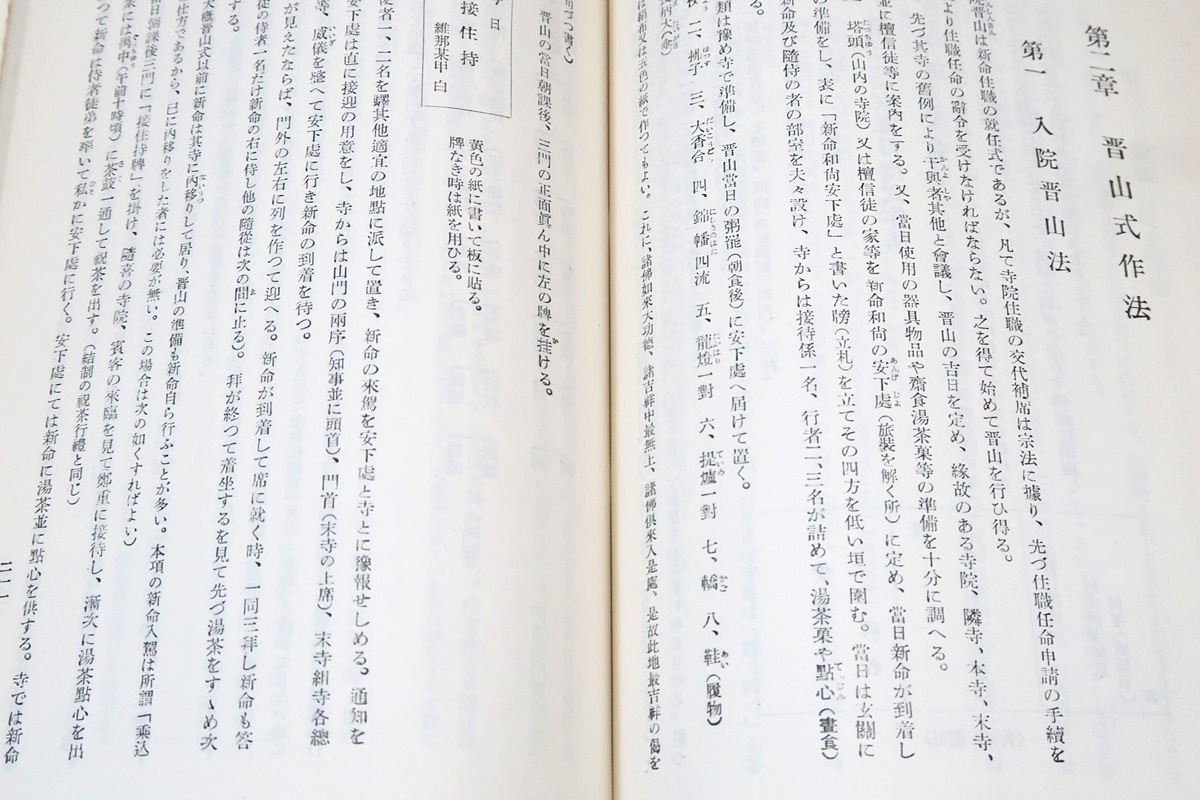 第二章 晋山式作法
第一 入院晋山法
院晋山は新命住職の就任式であるが、凡て寺院住職の交代補席は宗法に據り、先づ住職任命申請の手續を
より住職任命の辭令を受けなければならない。之を得て始めて晋山を行ひ得る。
先づ其寺の舊例により干與者其他と會議し、晋山の吉日を定め、緣故のある寺院、隣寺、本寺、末寺、
並に檀信徒等に案内をする。又、當日使用の器具物品や齋食湯茶菓等の準備を十分に調へる。
塔頭(山内の寺院)又は檀信徒の家等を新命和尚の安下處(旅裝を解く所)に定め、當日新命が到着し
の準備をし、表に「新命和尚安下處」と書いた牓(立札)を立てその四方を低い垣で圍む。當日は玄關に
新命及び隨侍の者の部室を夫々設け、寺からは接待係一名、行者二、三名が詰めて、湯茶菓や點心(晝食)
る。
類は豫め寺で準備し、晋山當日の粥罷(朝食後)に安下處へ屆けて置く。
二、拂子 三、大香合 四、錦幡四流 五、龍燈一對 六、提爐一對 七、轎 八、鞋(履物)
長柄(傘)
は絹又は五色の紙で作つてもよい。これに、諸佛如來大功德、諸吉祥中最無上、諸佛俱來入是處、是故此地最吉祥の偈を
晋山の當日朝課後、三門の正面眞ん中に左の牌を挂ける。
今日
接住持
維那某甲 白
黃色の紙に書いて板に貼る。
牌なき時は紙を用ひる。
使者一、二名を驛其他適宜の地點に派して置き、新命の來駕を安下處と寺とに豫報せしめる。通知を
安下處は直に接迎の用意をし、寺からは山門の兩序(知事並に頭首)、門首(末寺の上席)、末寺組寺各總
等、威儀を整へて安下處に行き新命の到着を待つ。
が見えたならば、門外の左右に列を作つて迎へる。新命が到着して席に就く時、一同三拜し新命も答
從の侍者一名だけ新命の右に侍し他の隨從は次の間に止る)。拜が終つて着坐するを見て先づ湯茶をすゝめ次
する。
大槪晋山式以前に新命は其寺に内移りして居り、晋山の準備も新命自ら行ふことが多い。本項の新命入駕は所謂「乘込
仕方であるから、已に内移りをした者には必要が無い。この場合は次の如くすればよい)
當日朝課後三門に「接住持牌」を掛け、隨喜の寺院、賓客の來臨を見て鄭重に接待し、漸次に湯茶點心を出
には禺中(午前十時頃)に茶鼓一通して祝茶を出す。(結制の祝茶行禮と同じ)
つて新命は侍者徒弟を牽いて私かに安下處に行く。安下處にては新命に湯茶並に點心を供する。寺では新命
二一一